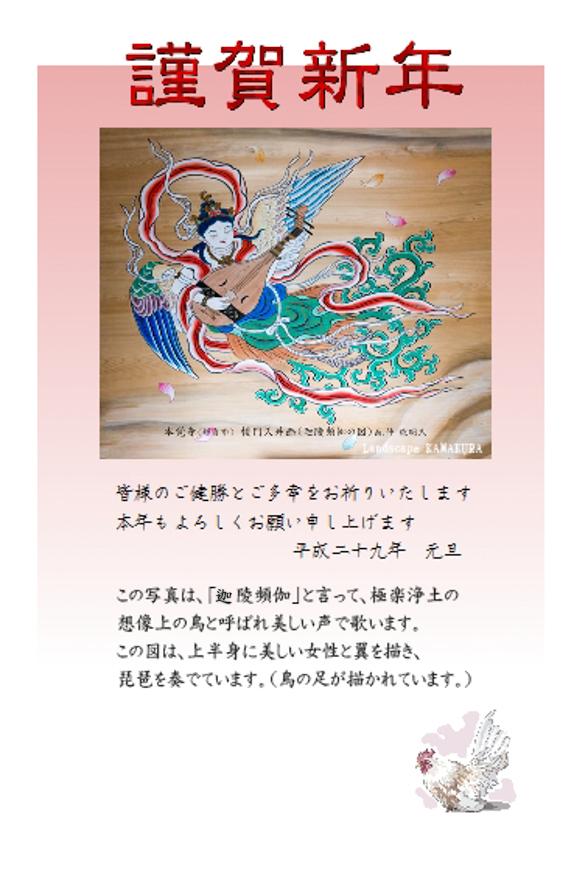 謹賀新年
本覚寺
Landscape KAMAKURA
皆様のご健勝とご多幸をお祈りいたします
本年もよろしくお願い申し上げます
平成二十九年 元旦
この写真は、「迦陵頻伽」と言って、極楽浄土の
想像上の鳥と呼ばれ美しい声で歌います。
この図は、上半身に美しい女性と翼を描き、
琵琶を奏でています。（鳥の足が描かれています。）